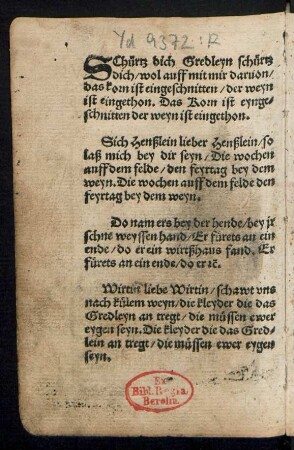 Yd 9372 : R
SChürtz dich Gredleyn schürtz
dich / wol auff mit mir daruon /
das korn ist eingeschnitten / der weyn
ist eingethon. Das Korn ist eynge-
schnitten der weyn ist eingethon.
Sich Henßlein lieber Henßlein / so
laß mich bey dir seyn / Die wochen
auff dem felde / den feyrtag bey dem
weyn. Die wochen auff dem felde den
feyrtag bey dem weyn.
Do nam ers bey der hende / bey jr
schne weyssen hand / Er fürets an ein
ende / do er ein wirtßhaus fand. Er
fürets an ein ende / do er ꝛc.
Wirtin liebe Wirtin / schawt vns
nach külem weyn / die kleyder die das
Gredleyn an tregt / die müssen ewer
eygen seyn. Die kleyder die das Gred-
lein an tregt / die müssen ewer eygen
seyn.
Ex
Bibl. Regia
Berolin.